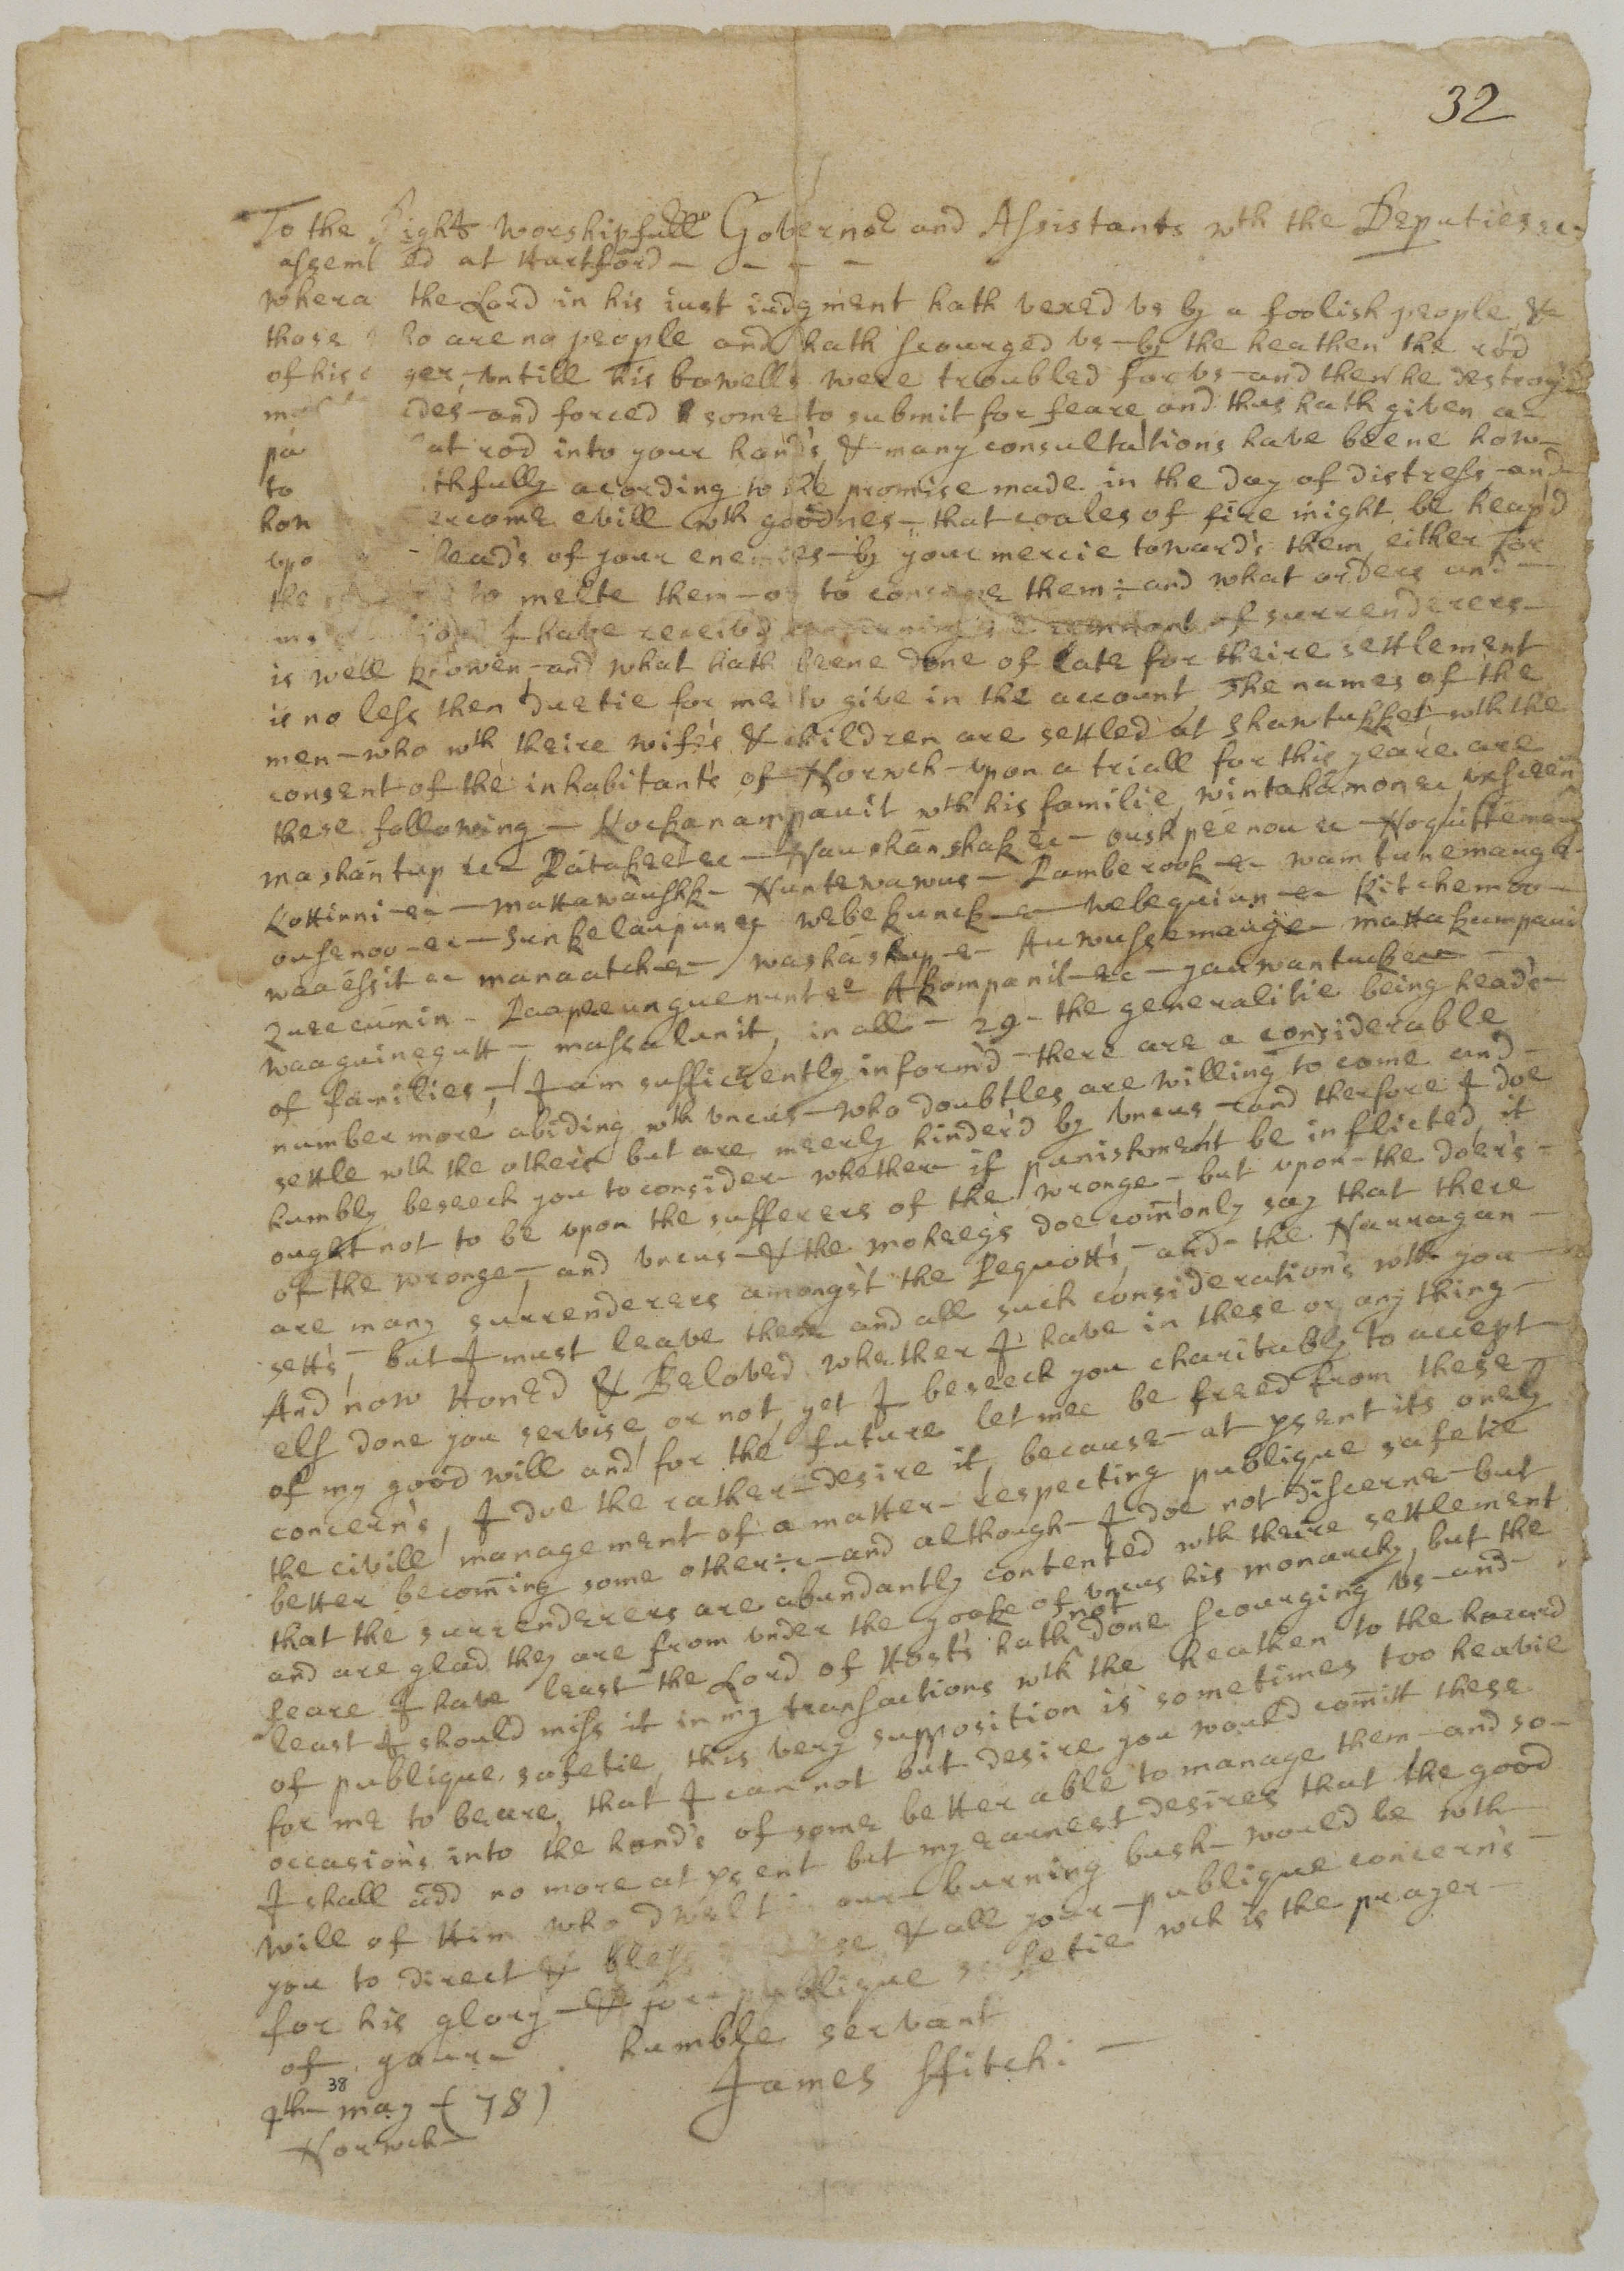 32
To the Right Worshipfull Governor and Assistants wth the Deputies &c
assem ed at Hartford
wherea the Lord in his iust iudgment hath vexed vs by a foolish people, &
those ho are no people and hath scourged vs by the heathen the rod
of his ger, vntill his bowells were troubled for vs and then he destroyd
des and forced some to submit for feare and thus hath given a
pa at rod into your hand's, & many consultations have beene how
to thfully acording to the promise made in the day of distress and
how ercome evill wth goodnes that coales of fire might be heap'd
vpo head's of your enemies by your mercie toward's them either for
the to melte them or to consume them: and what orders and
I have receivd remnant of surrenderers
is well knowen, and what hath beene done of late for theire settlement
is no less then duetie for me to give in the account, The names of the
men who wth theire wife's & children are settled at Shantukket wth the
consent of the inhabitant's of Norwch vpon a triall for this yeare are
these following Kockanampauit wth his familie, wintahamon &c
mashantup &c Patakee &c Naushanshak &c ouskpeenou &c
Kottinni &c mattawaushkk Nuntewawus Pamberook &c wamtunemaug &c
ousenoo &c Sunkelaupun &c webekunck &c webequiun &c Kitchemoo
waaessit &c manaatch &c washaskup &c Auwussemauge mattakumpauit
Queecumin Paapeeunguenunt &c Akompanit &c yauwantuck &c
waaquinegutt massalunit, in all 29 the generalitie being head's
of families, I am sufficiently inform'd there are a considerable
number more abiding wth vncus who doubtles are willing to come and
settle wth the others but are meerly hinder'd by vncus and therfore I doe
humbly beseech you to consider whether if punishment be inflicted, it
ought not to be vpon the sufferers of the wronge but vpon the doer's
of the wronge, and vncus & the moheeg's doe comonly say that there
are many surrenderers amongst the Pequott's, and the Narragan
sett's, but I must leave these and all such consideration's wth you
And now Honed & Beloved whether I have in these or any thing
els done you servise or not, yet I beseech you charitably to accept
of my good will and for the future let mee be freed from these
concern's, I doe the rather desire it, because at psent its onely
the civill management of a matter respecting publique safetie
better becoming some other: &c and although I doe not discerne but
that the surrenderers are abundantly contented wth theire settlement
and are glad they are from vnder the yoake of vncus his monarchy, but the
feare I have least the Lord of Host's hath not done scourging vs and
least I should miss it in my transactions wth the heathen to the hazard
of publique safetie, this very supposition is sometimes too heavie
for me to beare, that I can not but desire you would comitt these
occasion's into the hand's of some better able to manage them and so
I shall add no more at psent but my earnest desires that the good
will of Him who dwelt our burning bush would be wth
you to direct & bless & all your publique concern's
for his glory & publique safetie wch is the prayer
of your humble servant
James ffitch:
38
may (78)
Norwch